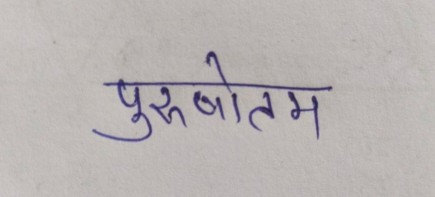 पुरुषोतम